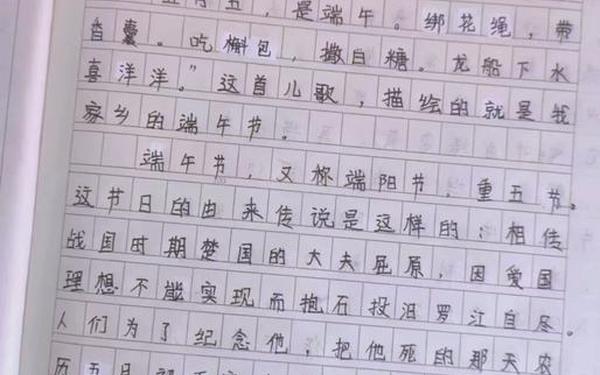 五月五，是端午。绑花绳，带
香囊。吃槲包，撒白糖。龙船下水
喜洋洋。”这首儿歌，描绘的就是我
家乡的端午节。
端午节，又称端阳节，重五节。
这节日的由来传说是这样的：相传
战国时期楚国的大夫屈原，因爱国
理想不能实现而抱石投汨罗江自尽。
人们为了纪念他，把他死的那天农
历五月